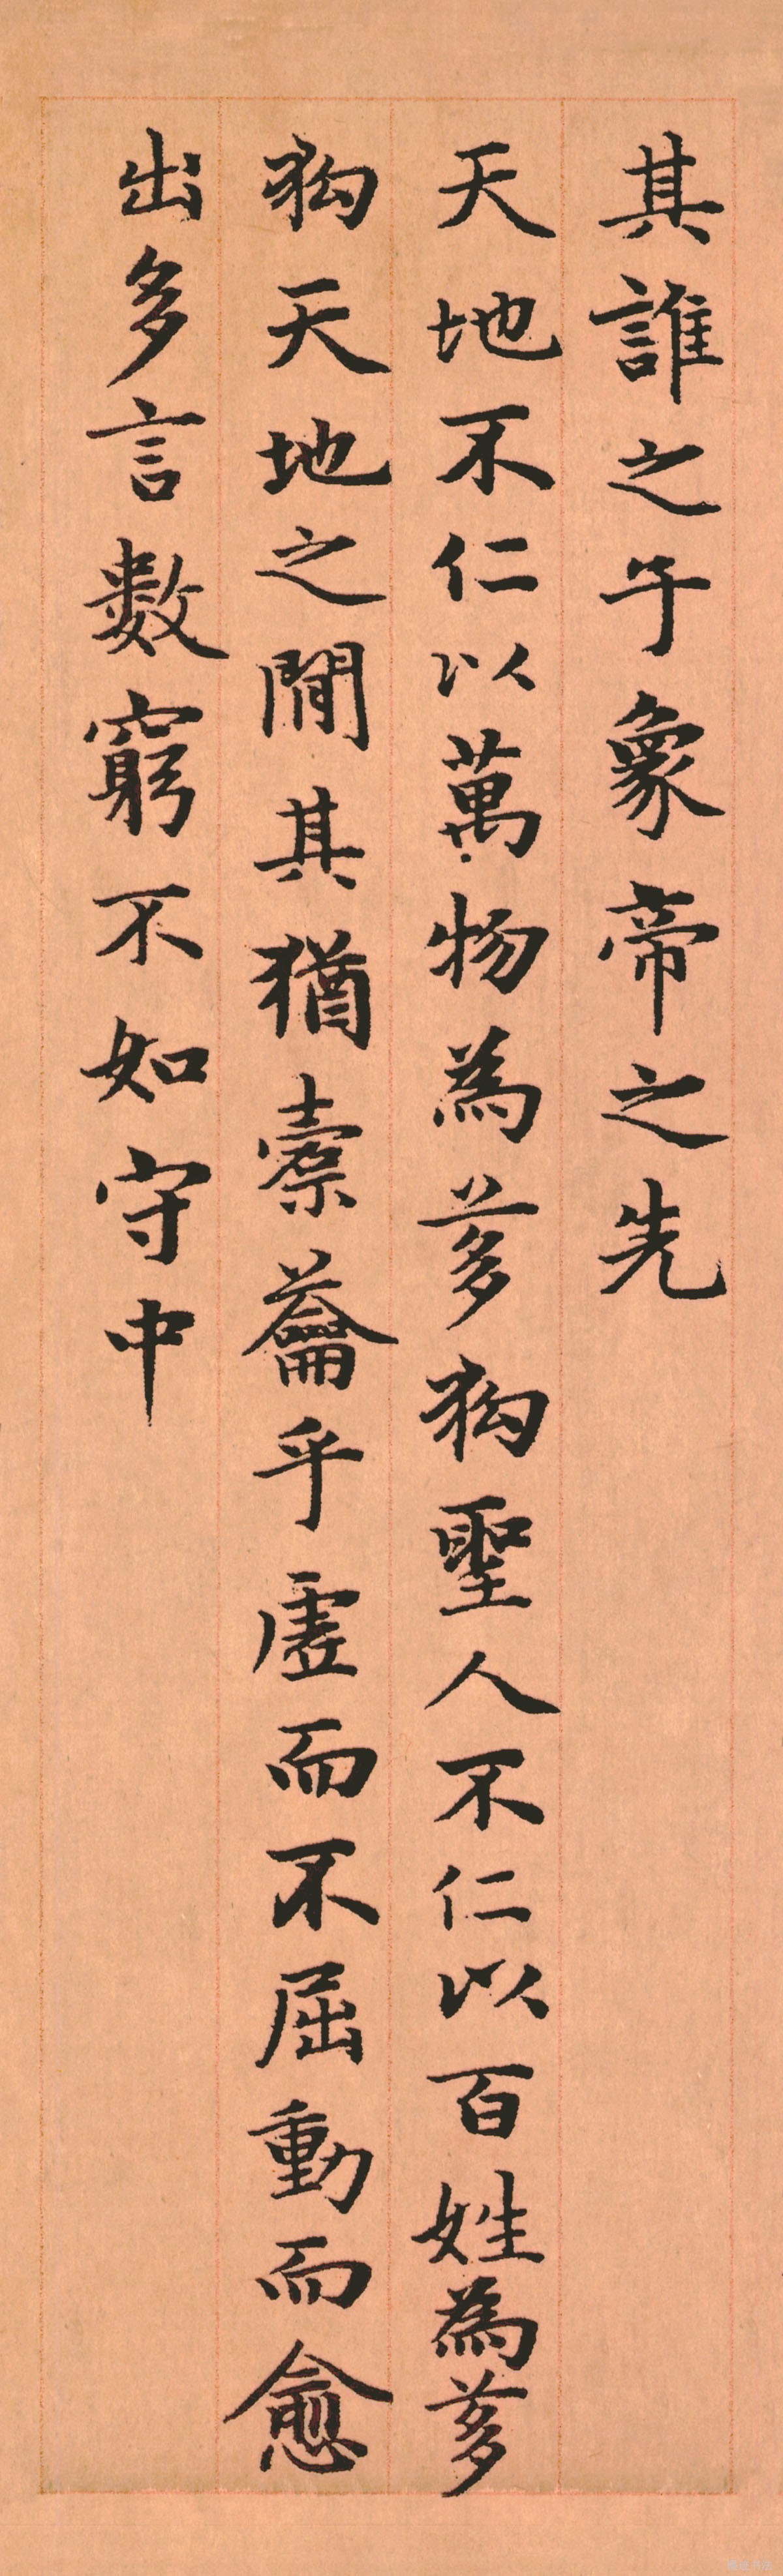 其誰之子象帝之先
天地不仁以萬物為芻狗聖人不仁以百姓為芻
狗天地之間其猶橐籥乎虛而不屈動而愈
出多言數窮不如守中